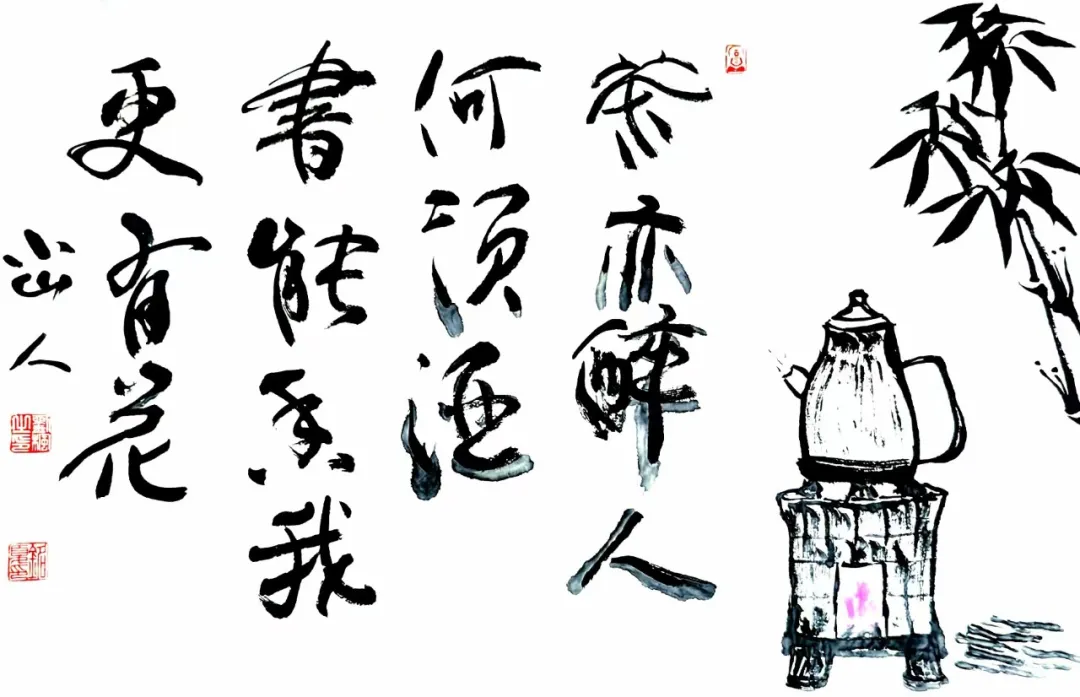 茶亦醉人
何須酒
書能香我
更有花
小山人